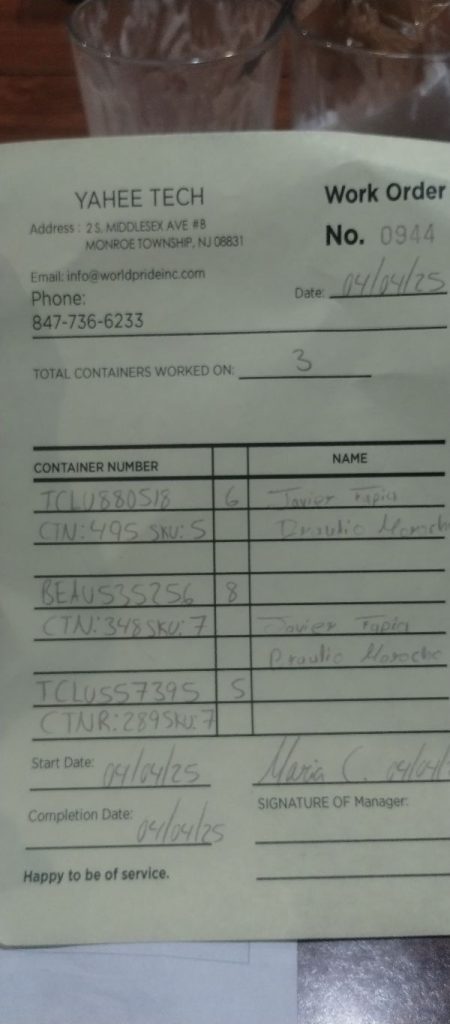 YAHEE TECH
Work Order
Address : 25. MIDDLESEX AVE #B
MONROE TOWNSHIP, NJ 08831
No. 0944
Email: info@worldprideinc.com
Date: 04/04/25
Phone:
847-736-6233
TOTAL CONTAINERS WORKED ON: 3
CONTAINER NUMBER NAME
TCLU880518 6 Javier Tapia
CTN:495 SKU:5 Draulio
BEAU535256 8
CTN:348 SKU:7 Javier Tapia
Draulio Morocho
TCLU557395 5
CTNR:289 SKU:7
Start Date: 04/04/25
Maria C. 04/04/
Completion Date: 04/04/25
SIGNATURE OF Manager:
Happy to be of service.